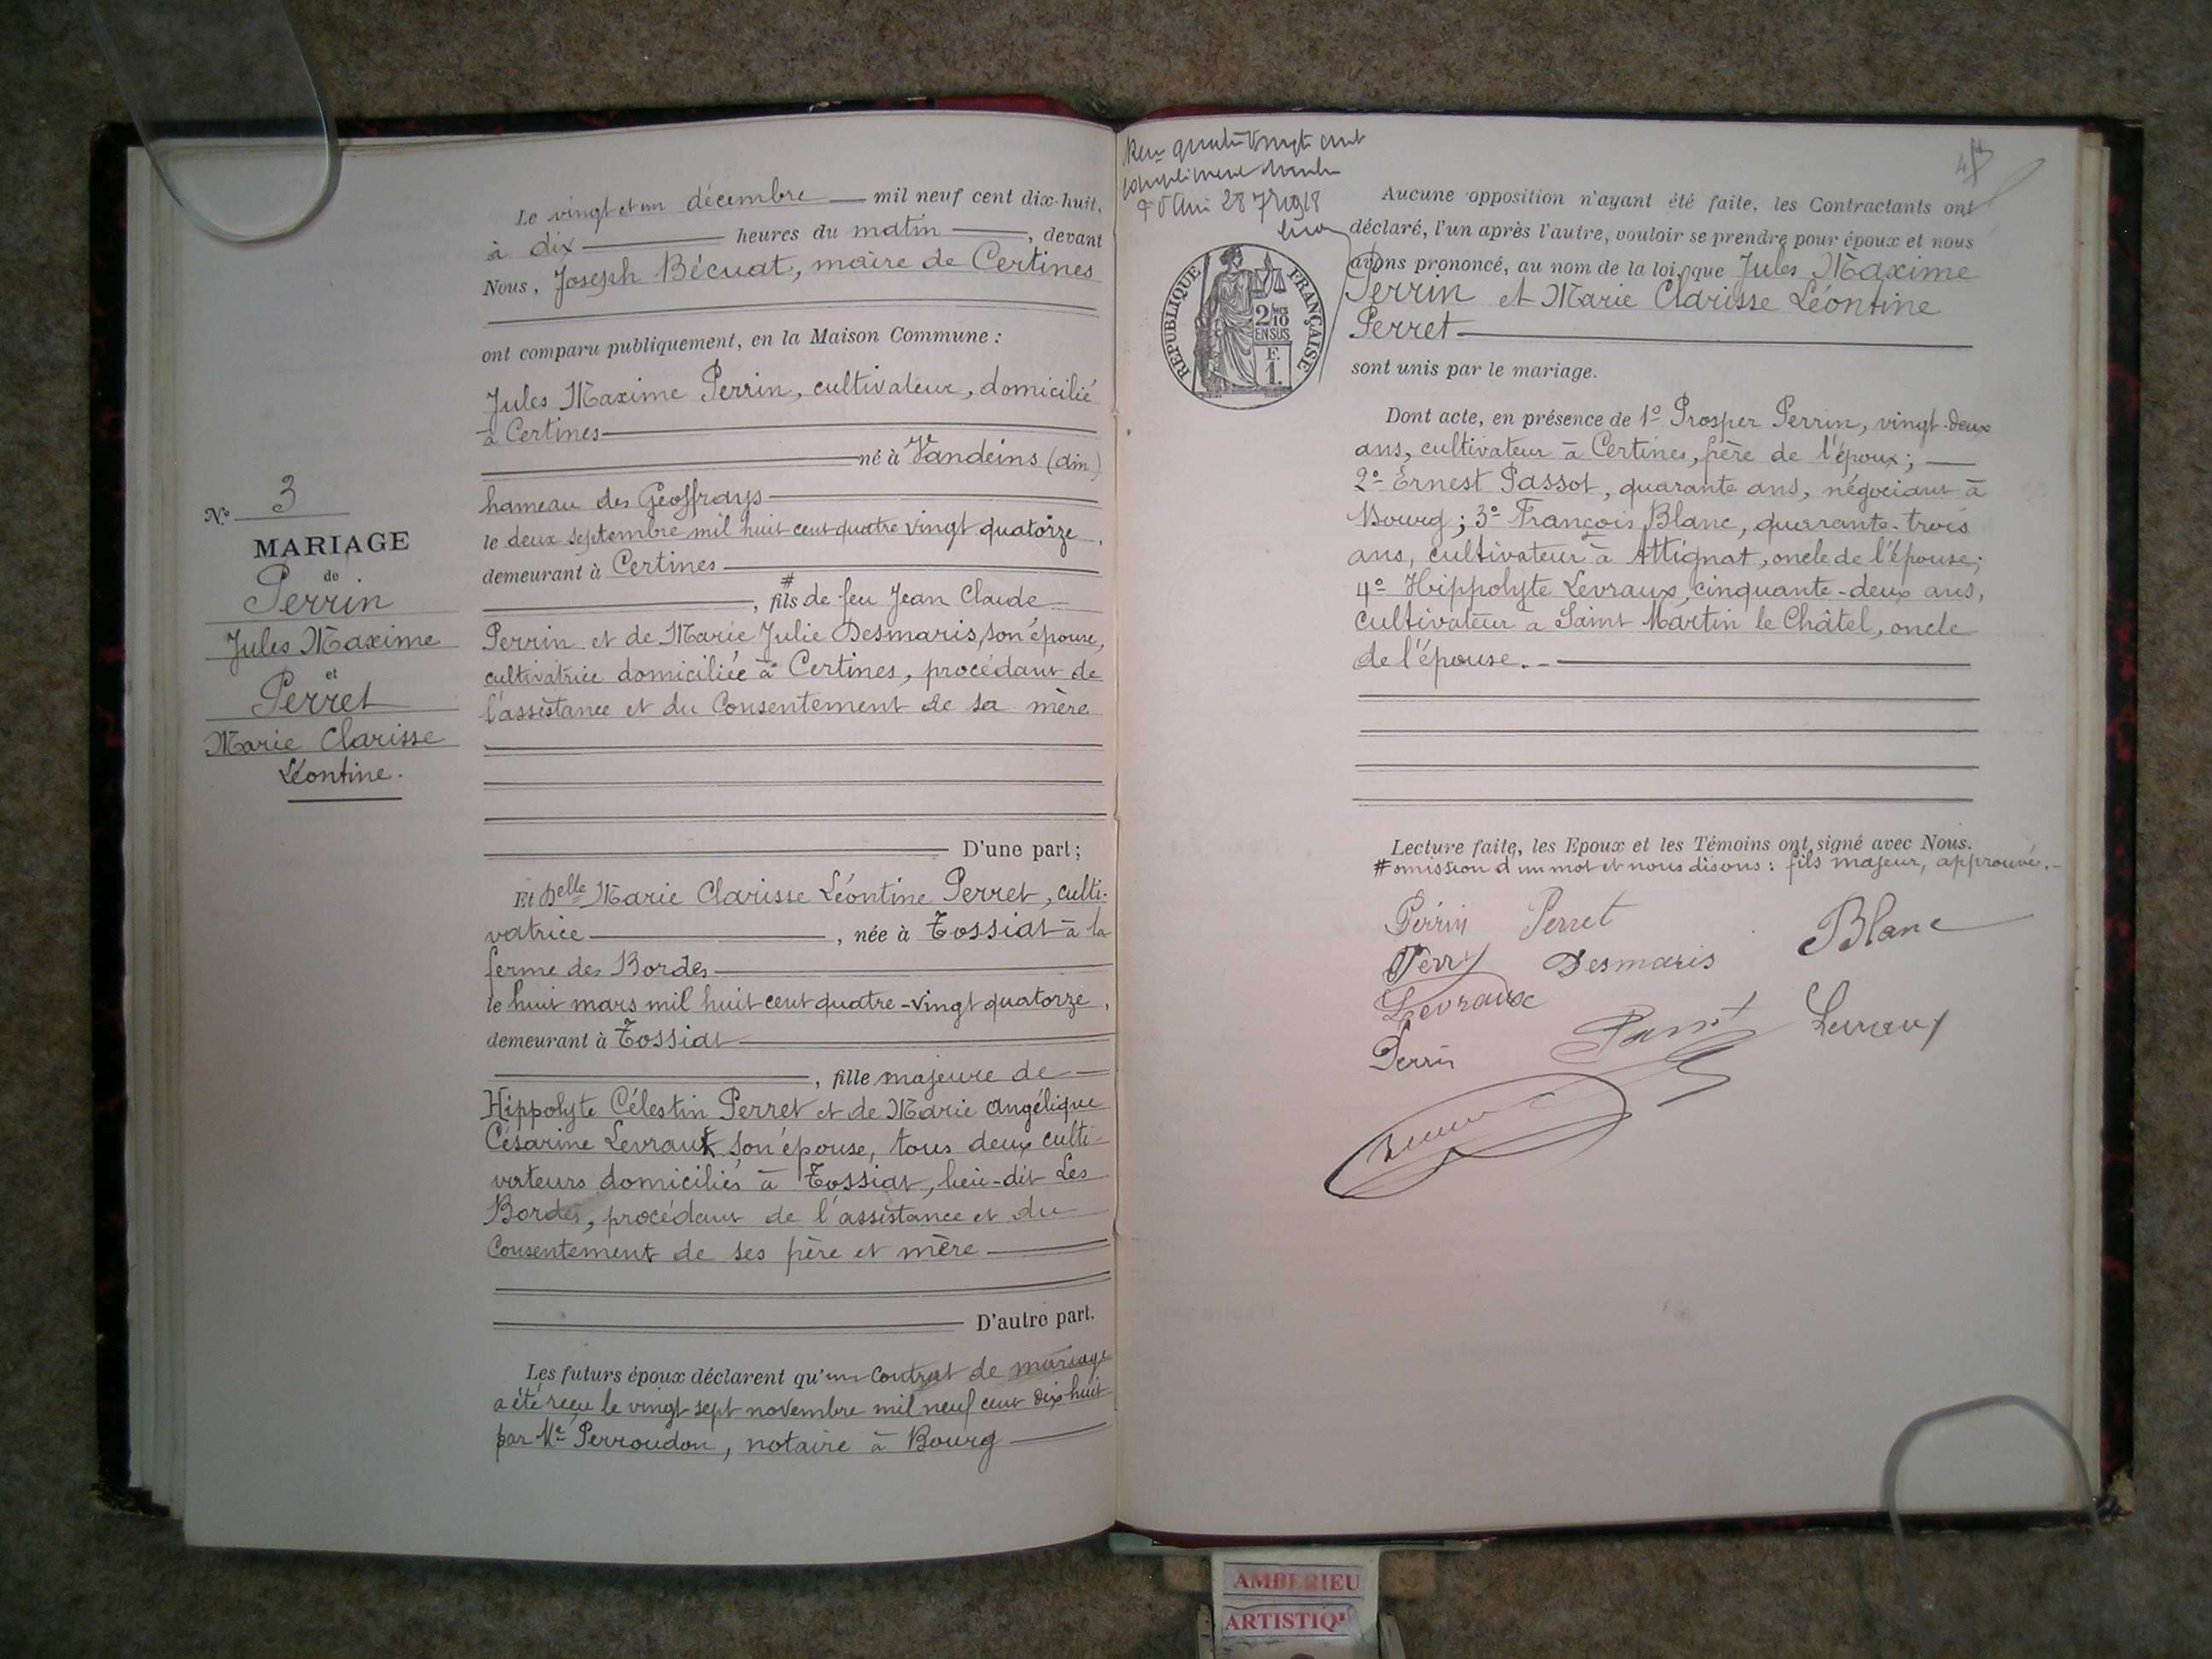 N° 3
MARIAGE
de
Perrin
Jules Maxime
et
Perret
Marie Clarisse
Léontine.
Le vingt et un décembre mil neuf cent dix-huit,
à dix heures du matin, devant
Nous, Joseph Bécuat, maire de Certines
ont comparu publiquement, en la Maison Commune :
Jules Maxime Perrin, cultivateur, domicilié
à Certines
né à Vandeins (Ain)
hameau des Geoffrays
le deux septembre mil huit cent quatre vingt quatorze,
demeurant à Certines
, fils # de feu Jean Claude
Perrin et de Marie Julie Desmaris, son épouse,
cultivatrice domiciliée à Certines, procédant de
l'assistance et du Consentement de sa mère
D'une part ;
Et Delle Marie Clarisse Léontine Perret, culti-
vatrice, née à Tossiat à la
ferme des Bordes
le huit mars mil huit cent quatre-vingt quatorze,
demeurant à Tossiat
, fille majeure de
Hippolyte Célestin Perret et de Marie Angélique
Césarine Levraux son épouse, tous deux culti-
vateurs domiciliés à Tossiat, lieu-dit Les
Bordes, procédant de l'assistance et du
Consentement de ses père et mère
D'autre part.
Les futurs époux déclarent qu'un Contrat de mariage
a été reçu le vingt sept novembre mil neuf cent dix huit
par Me Perroudon, notaire à Bourg
quatre vingt
28 1918
RÉPUBLIQUE FRANÇAISE
2/10
EN SUS
F.
1.
Aucune opposition n'ayant été faite, les Contractants ont
déclaré, l'un après l'autre, vouloir se prendre pour époux et nous
avons prononcé, au nom de la loi, que Jules Maxime
Perrin et Marie Clarisse Léontine
Perret
sont unis par le mariage.
Dont acte, en présence de 1° Prosper Perrin, vingt-deux
ans, cultivateur à Certines, frère de l'époux ;
2° Ernest Passot, quarante ans, négociant à
Bourg ; 3° François Blanc, quarante-trois
ans, cultivateur à Attignat, oncle de l'épouse ;
4° Hippolyte Levraux, cinquante-deux ans,
cultivateur à Saint Martin le Châtel, oncle
de l'épouse.
Lecture faite, les Epoux et les Témoins ont signé avec Nous.
# omission d'un mot et nous disons : fils majeur, approuvé.
Perrin Perret Blanc
Desmaris
Levraux Levraux
Perrin
AMBERIEU
ARTISTIQU